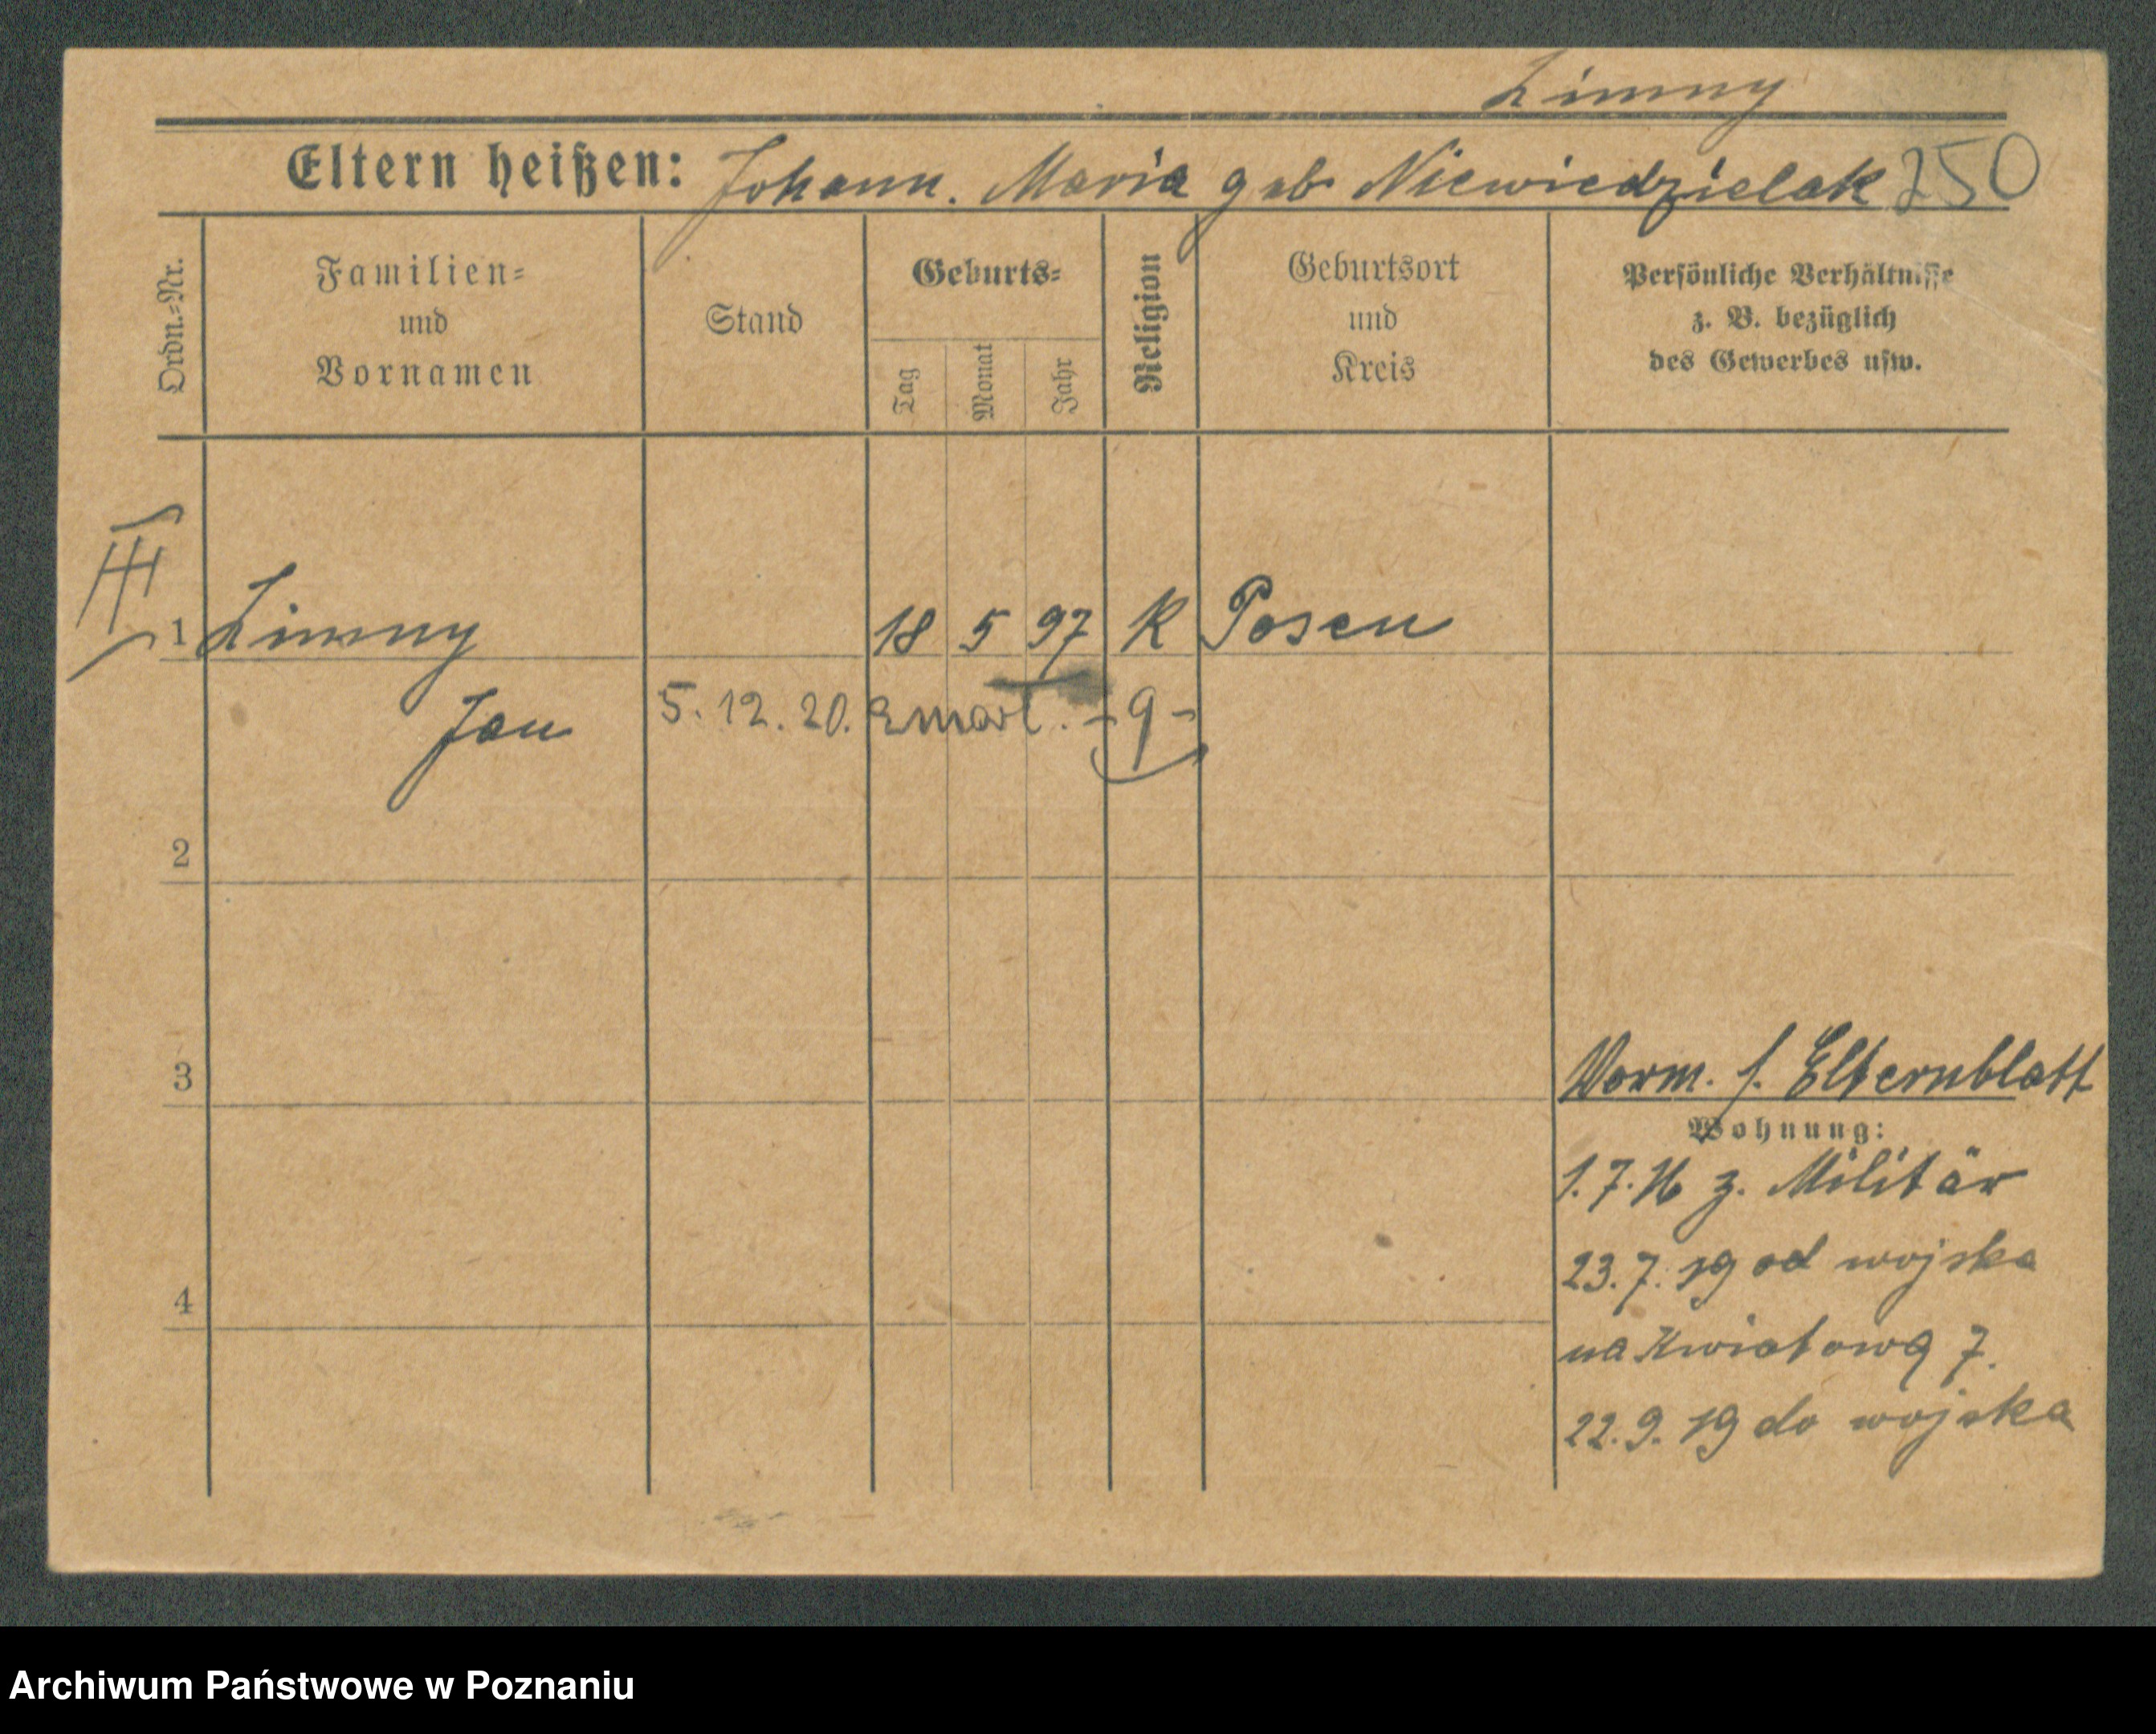 Zimny
Eltern heißen: Johann. Maria geb Niewiedzielak 250
Ordn.=Nr.
Familien=
und
Vornamen
Stand
Geburts=
Tag
Monat
Jahr
Religion
Geburtsort
und
Kreis
Persönliche Verhältnisse
z. B. bezüglich
des Gewerbes usw.
1 Zimny 18 5 97 K Posen
Jan 5. 12. 20. zmarł.
2
3
Verm. s. Elternblatt
Wohnung:
1. 7. 16 z. Militär
23. 7. 19 od wojska
4
na Kwiatową 7.
22. 9. 19 do wojska
Archiwum Państwowe w Poznaniu